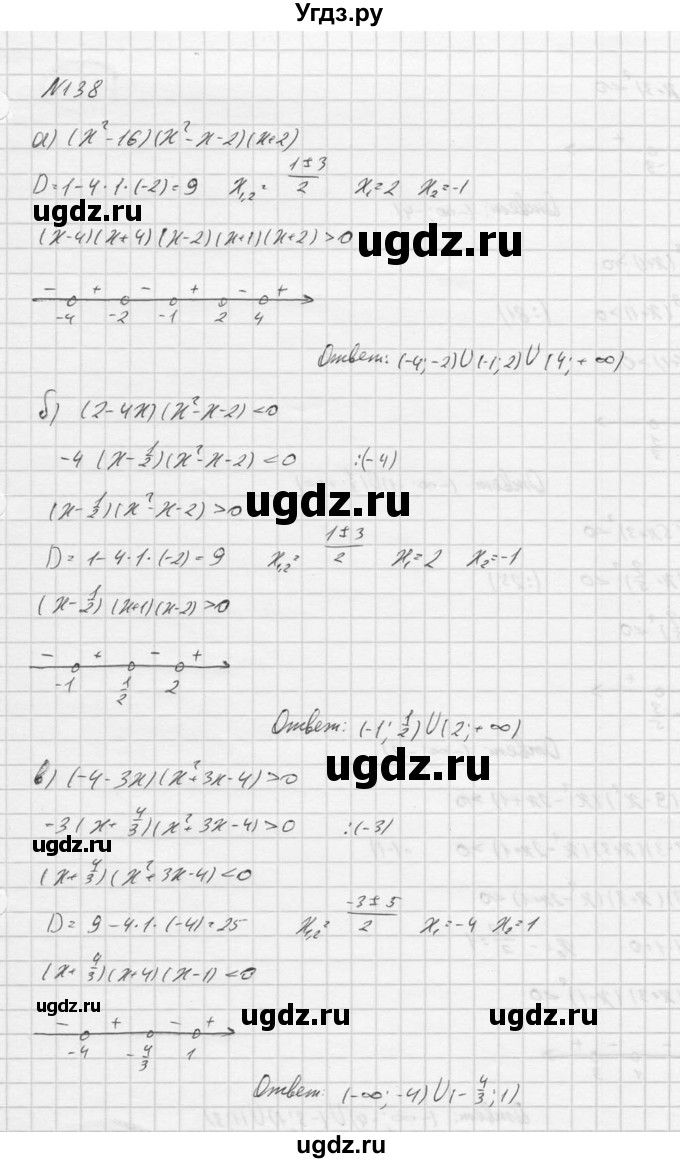 Угдз.ру
№138
а) (x²-16)(x²-x-2)(x+2)
D=1-4·1·(-2)=9 x₁,₂= (1±3)/2 x₁=2 x₂=-1
ugdz.ru
ugdz.ru
(x-4)(x+4)(x-2)(x+1)(x+2)>0
ugdz.ru
- + - + - +
-4 -2 -1 2 4
Ответ: (-4;-2)∪(-1;2)∪(4;+∞)
б) (2-4x)(x²-x-2)<0
-4(x-1/2)(x²-x-2)<0 :(-4)
ugdz.ru
(x-1/2)(x²-x-2)>0
D=1-4·1·(-2)=9 x₁,₂= (1±3)/2 x₁=2 x₂=-1
(x-1/2)(x+1)(x-2)>0
- + - +
-1 1/2 2
ugdz.ru
ugdz.ru
Ответ: (-1;1/2)∪(2;+∞)
в) (-4-3x)(x²+3x-4)>0
ugdz.ru
-3(x+4/3)(x²+3x-4)>0 :(-3)
ugdz.ru
(x+4/3)(x²+3x-4)<0
D=9-4·1·(-4)=25 x₁,₂= (-3±5)/2 x₁=-4 x₂=1
(x+4/3)(x+4)(x-1)<0
ugdz.ru
ugdz.ru
ugdz.ru
- + - +
-4 -4/3 1
Ответ: (-∞;-4)∪(-4/3;1)
ugdz.ru